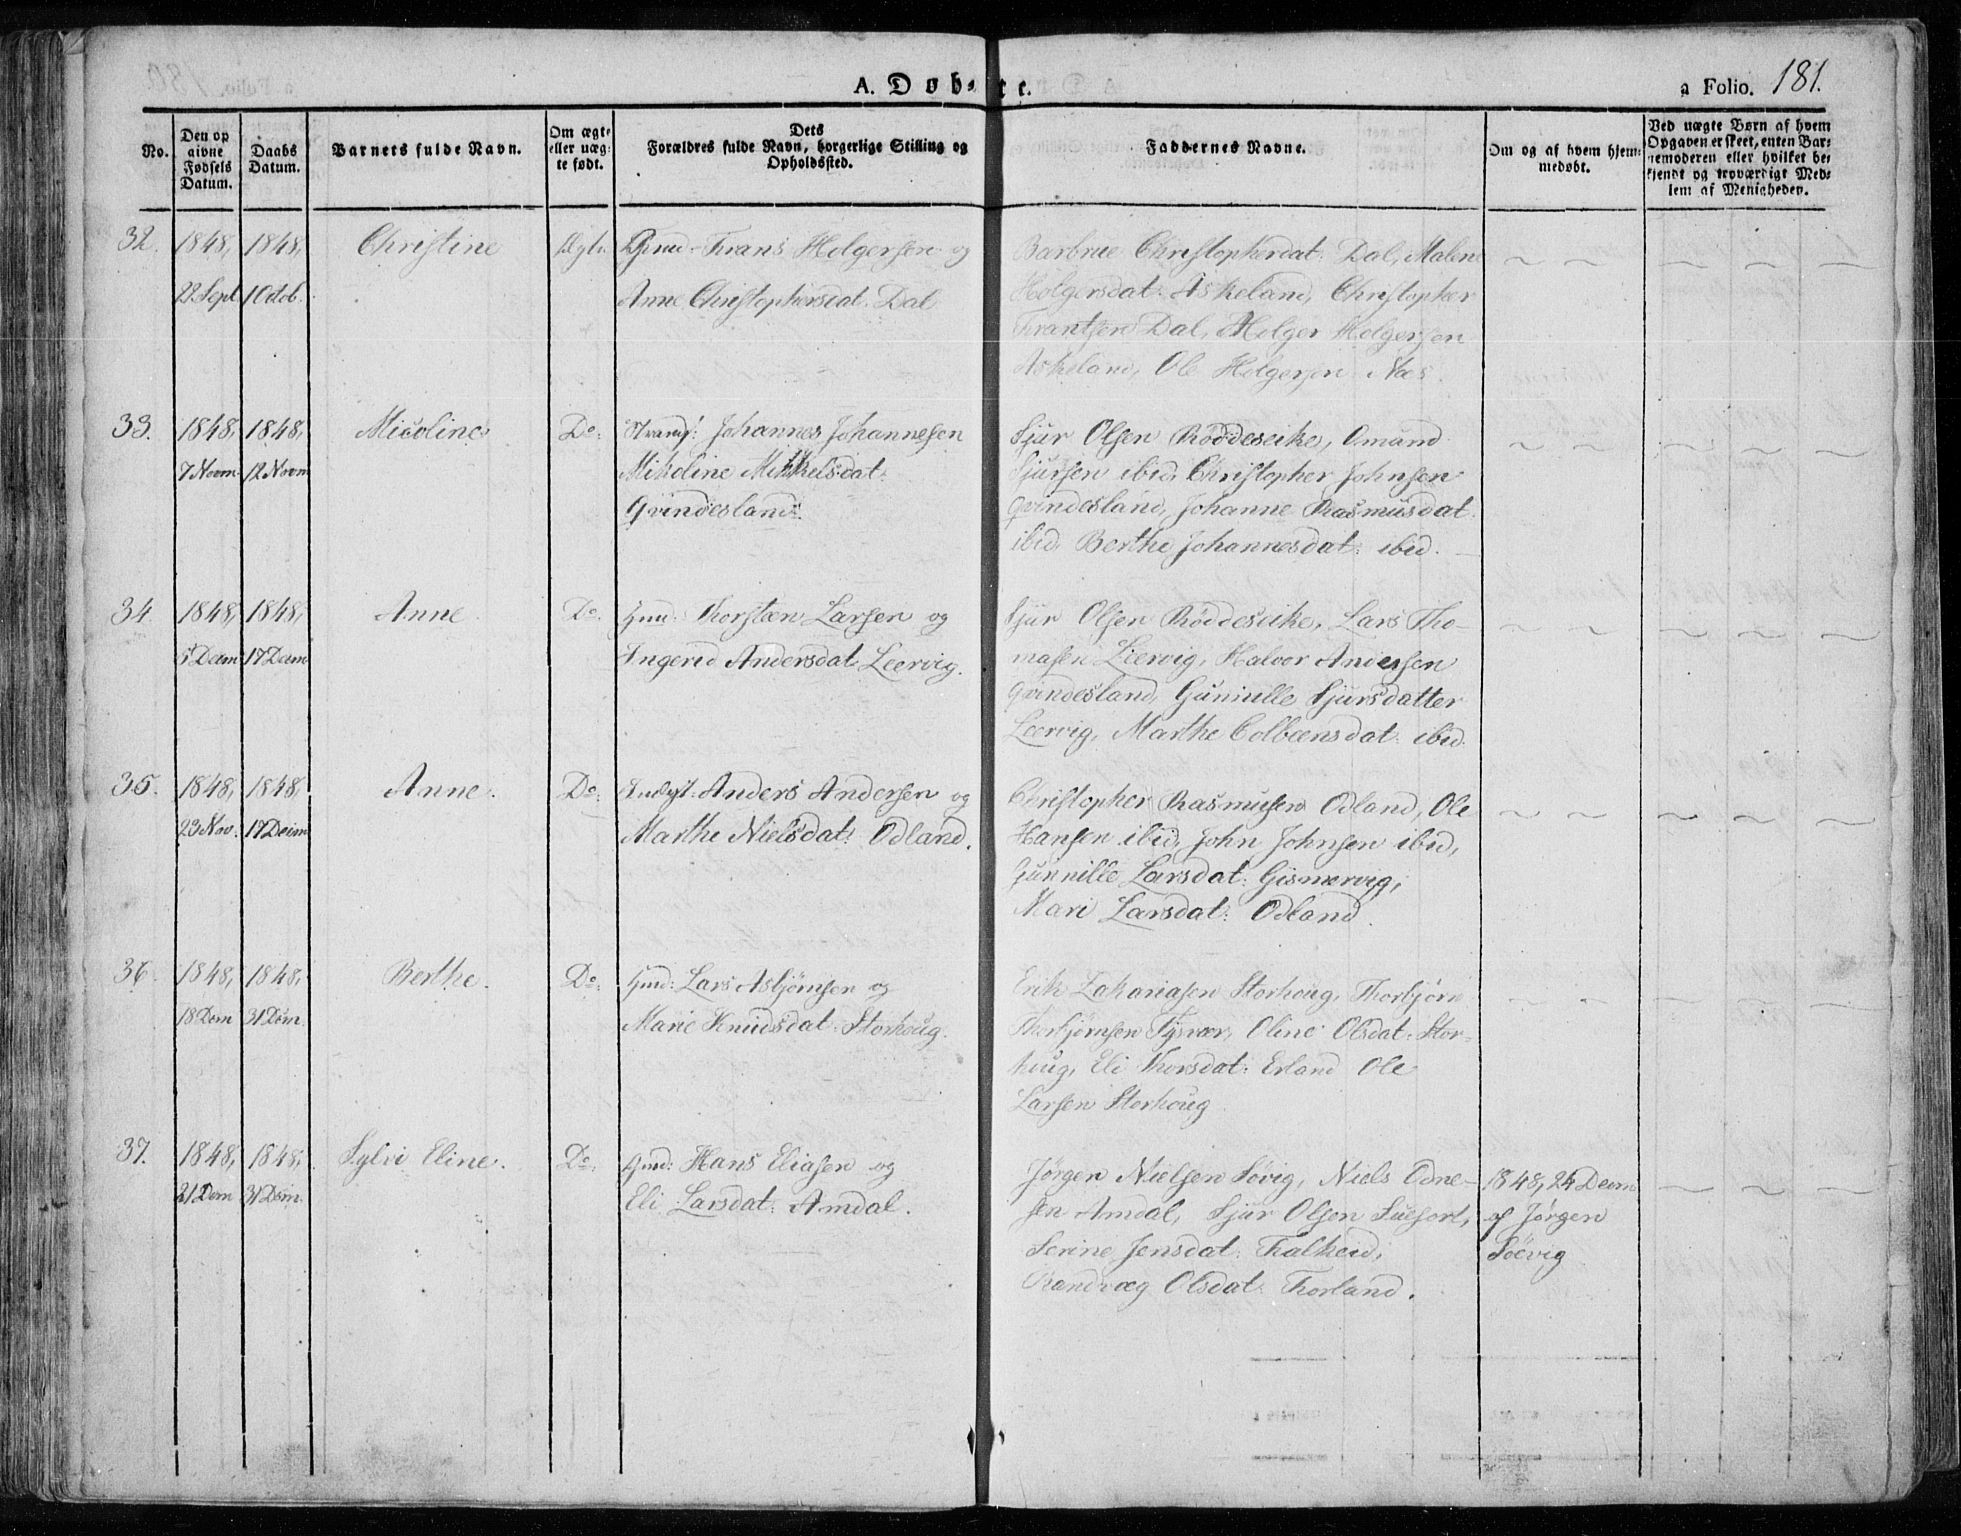 A. Døbte.
a Folio. 181.
No.
Den opgivne Fødsels Datum.
Daabs Datum.
Barnets fulde Navn.
Om ægte eller uægte født.
Dets Forældres fulde Navn, borgerlige Stilling og Opholdssted.
Faddernes Navne.
Om og af hvem hjemmedøbt.
Ved uægte Børn af hvem Opgaven er skeet, enten Barnemoderen eller hvilket bekjendt og troværdigt Medlem af Menigheden.
32. 1848, 1848, Christine Ægte Frans Holgersen og
28 Sept 1 Octob. Anne Christophersdat. Dal
Barbrue Christopherdat: Dal, Malene
Holgersdat: Askeland, Christopher
Frantsen Dal, Holger Holgersen
Askeland, Ole Holgersen Næs.
33. 1848, 1848, Micoline Do: Strand: Johannes Johannesen
7 Novm 12 Novm Mikoline Mikkelsdat:
Qvindesland.
Sjur Olsen Røddeseike, Omund
Sjursen ibid, Christopher Johnsen
Qvindesland, Johanne Rasmusdat
ibid, Berthe Johannesdat: ibid.
34. 1848, 1848, Anne Do: Gmd: Thorsten Larsen og
5 Decm 17 Decm Ingerid Andersdat: Leervig.
Sjur Olsen Røddeseike, Lars Tho-
masen Leervig, Halvor Andersen
Qvindesland, Gunnille Sjursdatter
Leervig, Marthe Colbensdat: ibid.
35. 1848, 1848, Anne. Do: Indgst: Anders Andersen og
23 Nov: 17 Decm Marthe Nielsdat: Odland.
Christopher Rasmusen Odland, Ole
Hansen ibid, John Johnsen ibid,
Gunnille Larsdat: Gismervig,
Mari Larsdat: Odland.
36. 1848, 1848, Berthe. Do: Gmd: Lars Asbjørnsen og
18 Dcm 31 Dcm. Marie Knudsdat: Storhoug.
Erik Zakariasen Storhoug, Thorbjørn
Thorbjørnsen Tysvær, Oline Olsdat: Stor-
houg, Eli Thorsdat: Erland Ole
Larsen Storhoug
37. 1848, 1848, Sylvi Eline. Do: Gmd: Hans Eliasen og
21 Dcm 31 Dcm. Eli Larsdat: Amdal.
Jørgen Nielsen Søvig, Niels Odne-
sen Amdal, Sjur Olsen
Serine Jensdat: Falkeid,
Randvæg Olsdat: Thorland.
1848, 24 Decm
af Jørgen
Søevig